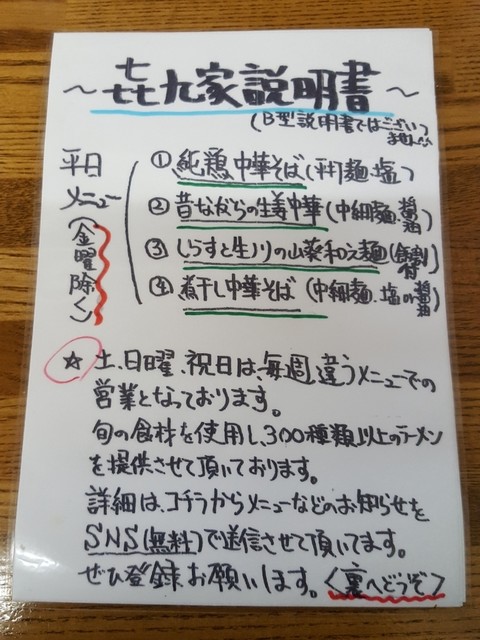 ～㐂九家説明書～
(B型説明書ではございません…)
平日メニュー(金曜除く)
① 純鶏中華そば(平打麺.塩)
② 昔ながらの生姜中華(中細麺.醤油)
③ しらすと生ノリの山葵和え麺(飯割付)
④ 煮干し中華そば (中細麺.塩or醤油)
☆ 土、日曜、祝日は、毎週、違うメニューでの
営業となっております。
旬の食材を使用し、300種類以上のラーメン
を提供させて頂いております。
詳細は、コチラからメニューなどのお知らせを
SNS(無料)で送信させて頂いてます。
ぜひ登録お願いします。<裏へどうぞ>